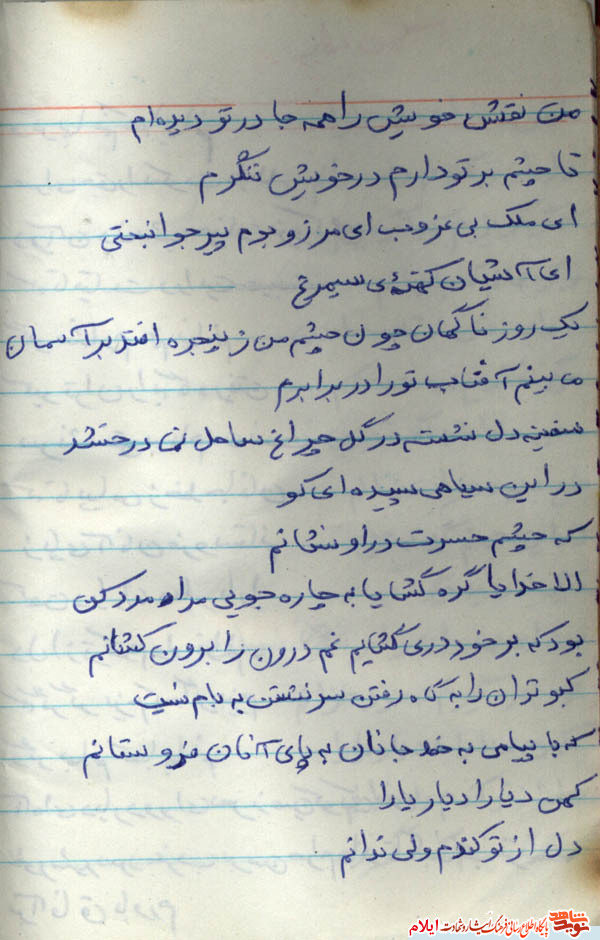 من نقش خویش را همه جا در تو دیده‌ام
تا چشم بر تو دارم در خویش ننگرم
ای ملک بی غروب ای مرز و بوم پیر جوانبختی
ای آشیان کهنه‌ی سیمرغ
یک روز ناگهان چون چشم من ز پنجره افتد بر آسمان
می بینم آفتاب تو را در برابرم
سفینه دل نشسته در گل چراغ ساحل نمی درخشد
در این سیاهی سپیده ای کو
که چشم حسرت در او نشانم
الا خدایا گره گشایا به چاره جویی مرا مدد کن
بود که بر خود دری گشایم غم درون را برون کشانم
کبوتران را به گاه رفتن سر نشستن به بام نیست
که با پیامی به خط جانان به پای آنان فرو ستانم
کهن دیارا دیار یارا
دل از تو کندم ولی ندانم
نوید شاهد پایگاه اطلاع رسانی فرهنگ ایثار و شهادت ایلام